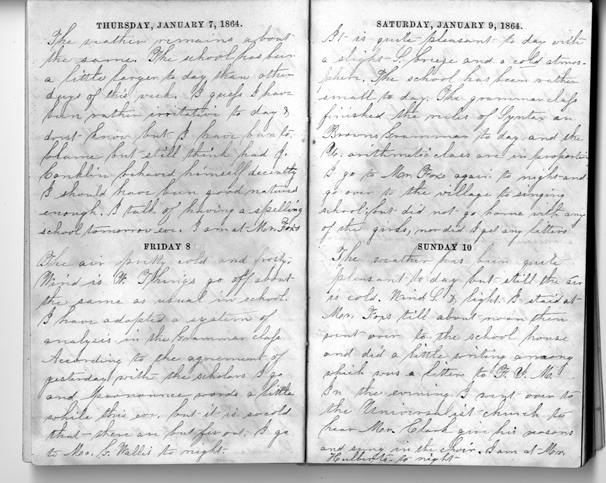 THURSDAY, JANUARY 7, 1864.
The weather remains about
the same. The school has been
a little larger to day than other
days of this week. I guess I have
been rather irritative to day &
dont know but I have been to
blame but still think had J.
Conklin behaved himself decently
I should have been good natured
enough. I talk of having a spelling
school tomorrow eve. I am at Mr. Fox's
FRIDAY 8
The air pretty cold and frosty.
Wind is W. Things go off about
the same as usual in school.
I have adopted a system of
analysis in the Grammar class
According to the agreement of
yesterday with the scholars I go
and pronounce words a little
while this eve. but it is so cold
that there are but few out. I go
to Mr. G. Wallis to night.
SATURDAY, JANUARY 9, 1864.
It is quite pleasant to day with
a slight S. breeze and a cold atmos-
phere. The school has been rather
small to day. The grammar class
finished the rules of Syntax in
Browns Grammar to day and the
arithmetic class are in proportion
I go to Mr. Foxs again to night and
go over to the village to singing
school; but did not go home with any
of the girls, nor did I get any letters
SUNDAY 10
The weather has been quite
pleasant to day but still the air
is cold. Wind & light. I staid at
Mr. Foxs till about noon then
went over to the school house
and did a little writing among
which was a letter to
In the evening I went over to
the Universalist church to
hear Mr. Clark give his reasons
and sung in the choir. I am at Mr.
to night